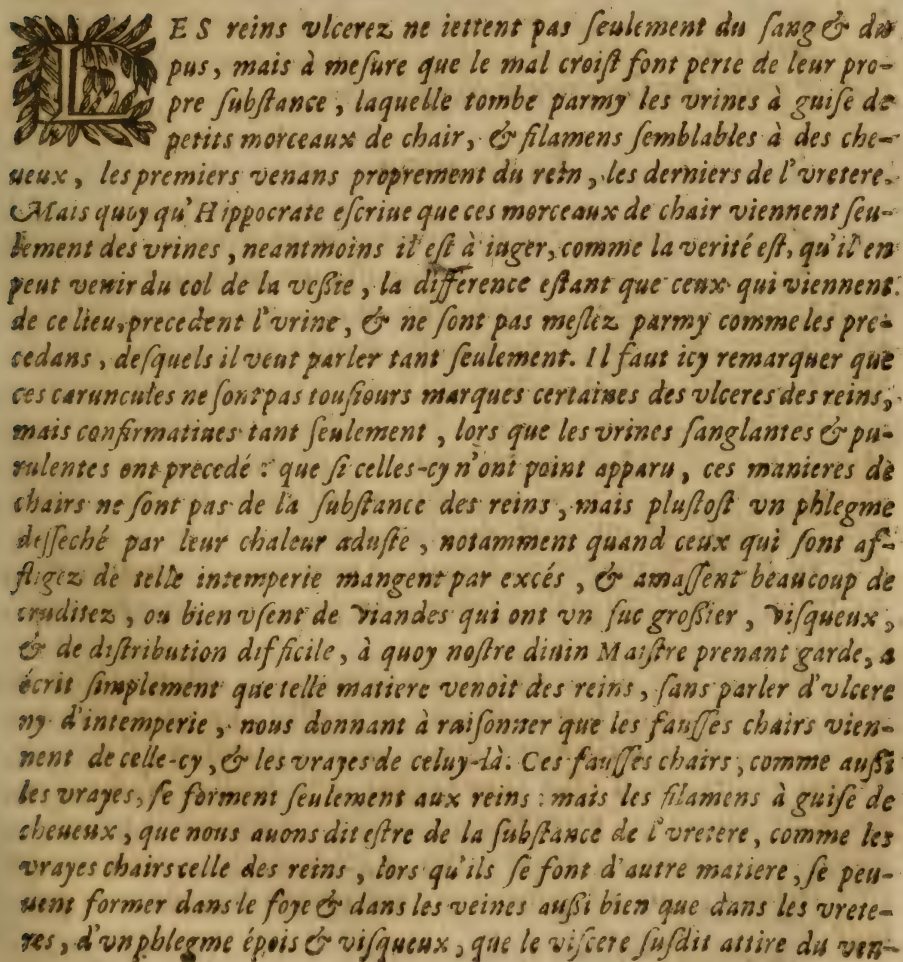 LES reins vlcerez ne iettent pas ſeulement du ſang & du
pus, mais à meſure que le mal croiſt font perte de leur pro-
pre ſubſtance, laquelle tombe parmy les vrines à guiſe de
petits morceaux de chair, & filamens ſemblables à des che-
ueux, les premiers venans proprement du rein, les derniers de l'vretere.
Mais quoy qu'Hippocrate eſcriue que ces morceaux de chair viennent ſeu-
lement des vrines, neantmoins il eſt à iuger, comme la verité eſt, qu'il en
peut venir du col de la veſsie, la difference eſtant que ceux qui viennent
de ce lieu, precedent l'vrine, & ne ſont pas meſlez parmy comme les pre-
cedans, deſquels il veut parler tant ſeulement. Il faut icy remarquer que
ces caruncules ne ſont pas touſiours marques certaines des vlceres des reins,
mais confirmatiues tant ſeulement, lors que les vrines ſanglantes & pu-
rulentes ont precedé : que ſi celles-cy n'ont point apparu, ces manieres de
chairs ne ſont pas de la ſubſtance des reins, mais pluſtoſt vn phlegme
deſſeché par leur chaleur aduſte, notamment quand ceux qui ſont af-
fligez de telle intemperie mangent par excés, & amaſſent beaucoup de
cruditez, ou bien vſent de viandes qui ont vn ſuc groſsier, viſqueux,
& de diſtribution difficile, à quoy noſtre diuin Maiſtre prenant garde, a
écrit ſimplement que telle matiere venoit des reins, ſans parler d'vlcere
ny d'intemperie, nous donnant à raiſonner que les fauſſes chairs vien-
nent de celle-cy, & les vrayes de celuy-là. Ces fauſſes chairs, comme auſsi
les vrayes, ſe forment ſeulement aux reins : mais les filamens à guiſe de
cheueux, que nous auons dit eſtre de la ſubſtance de l'vretere, comme les
vrayes chairs celle des reins, lors qu'ils ſe font d'autre matiere, ſe peu-
uent former dans le foye & dans les veines auſsi bien que dans les vrete-
res, d'vn phlegme épois & viſqueux, que le viſcere ſuſdit attire du ven-